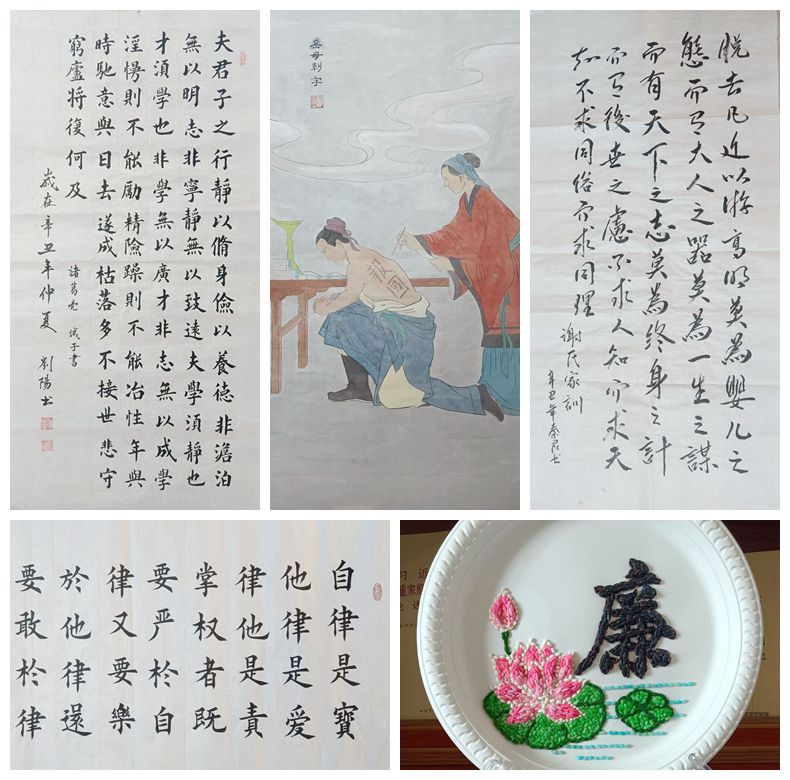 夫君子之行靜以脩身儉以養德非澹泊
無以明志非寧靜無以致遠夫學湏靜也
才湏學也非學無以廣才非志無以成學
淫慢則不能勵精險躁則不能冶性年與
時馳意與日去遂成枯落多不接世悲守
窮廬將復何及
諸葛亮 诫子書
歲在辛丑年仲夏 劉陽书
岳母刺字
報國
脱去凡近以游高明莫為嬰儿之
態而有大人之器莫為一生之謀
而有天下之志莫為終身之計
而有後世之慮不求人知而求天
知不求同俗而求同理
謝氏家訓
辛丑年秦
自律是寶
他律是愛
律他是責
掌权者既
要严於自
律又要樂
於他律還
要敢於律
廉